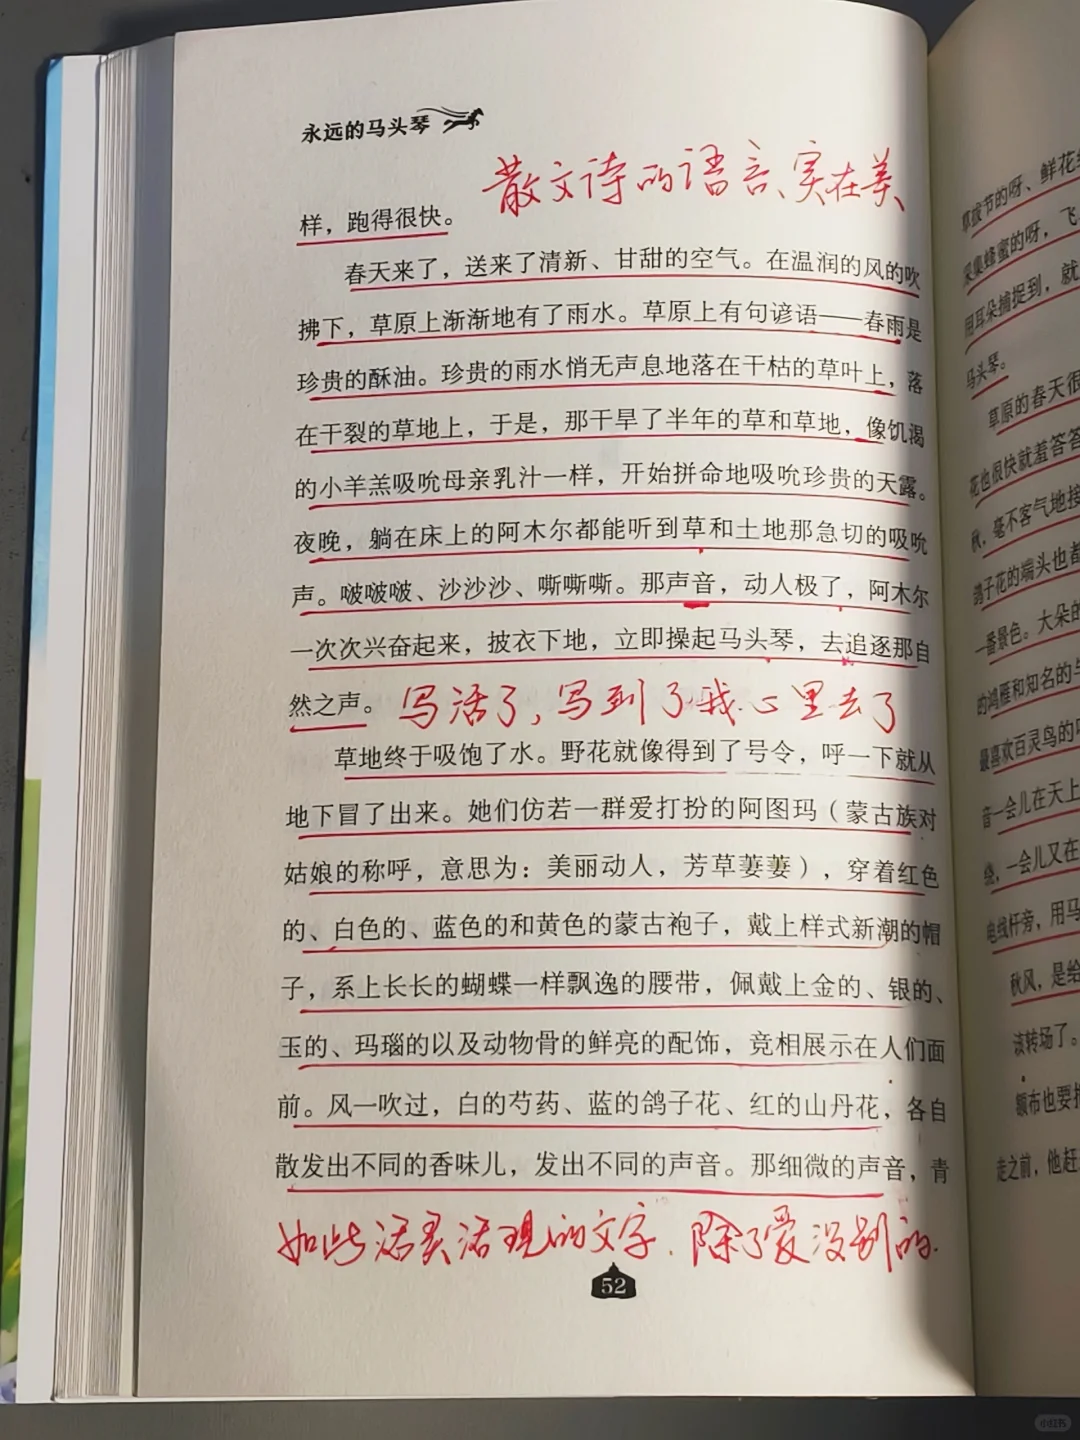 永远的马头琴
散文诗的语言、实在美
样，跑得很快。
春天来了，送来了清新、甘甜的空气。在温润的风的吹
拂下，草原上渐渐地有了雨水。草原上有句谚语——春雨是
珍贵的酥油。珍贵的雨水悄无声息地落在干枯的草叶上，落
在干裂的草地上，于是，那干旱了半年的草和草地，像饥渴
的小羊羔吸吮母亲乳汁一样，开始拼命地吸吮珍贵的天露。
夜晚，躺在床上的阿木尔都能听到草和土地那急切的吸吮
声。啵啵啵、沙沙沙、嘶嘶嘶。那声音，动人极了，阿木尔
一次次兴奋起来，披衣下地，立即操起马头琴，去追逐那自
然之声。
写活了，写到了我心里去了
草地终于吸饱了水。野花就像得到了号令，呼一下就从
地下冒了出来。她们仿若一群爱打扮的阿图玛（蒙古族对
姑娘的称呼，意思为：美丽动人，芳草萋萋），穿着红色
的、白色的、蓝色的和黄色的蒙古袍子，戴上样式新潮的帽
子，系上长长的蝴蝶一样飘逸的腰带，佩戴上金的、银的、
玉的、玛瑙的以及动物骨的鲜亮的配饰，竞相展示在人们面
前。风一吹过，白的芍药、蓝的鸽子花、红的山丹花，各自
散发出不同的香味儿，发出不同的声音。那细微的声音，青
如此活灵活现的文字，除了爱没别的.
52
草拔节的呀、鲜花
采集蜂蜜的呀，飞
用耳朵捕捉到，就
马头琴。
草原的春天很
花也很快就羞答答
秋，毫不客气地接
鸽子花的端头也都
一番景色。大朵的
的鸿雁和知名的与
最喜欢百灵鸟的
音一会儿在天上
绕，一会儿又在
电线杆旁，用马
秋风，是给
该转场了。
额布也要
走之前，他赶
小红书